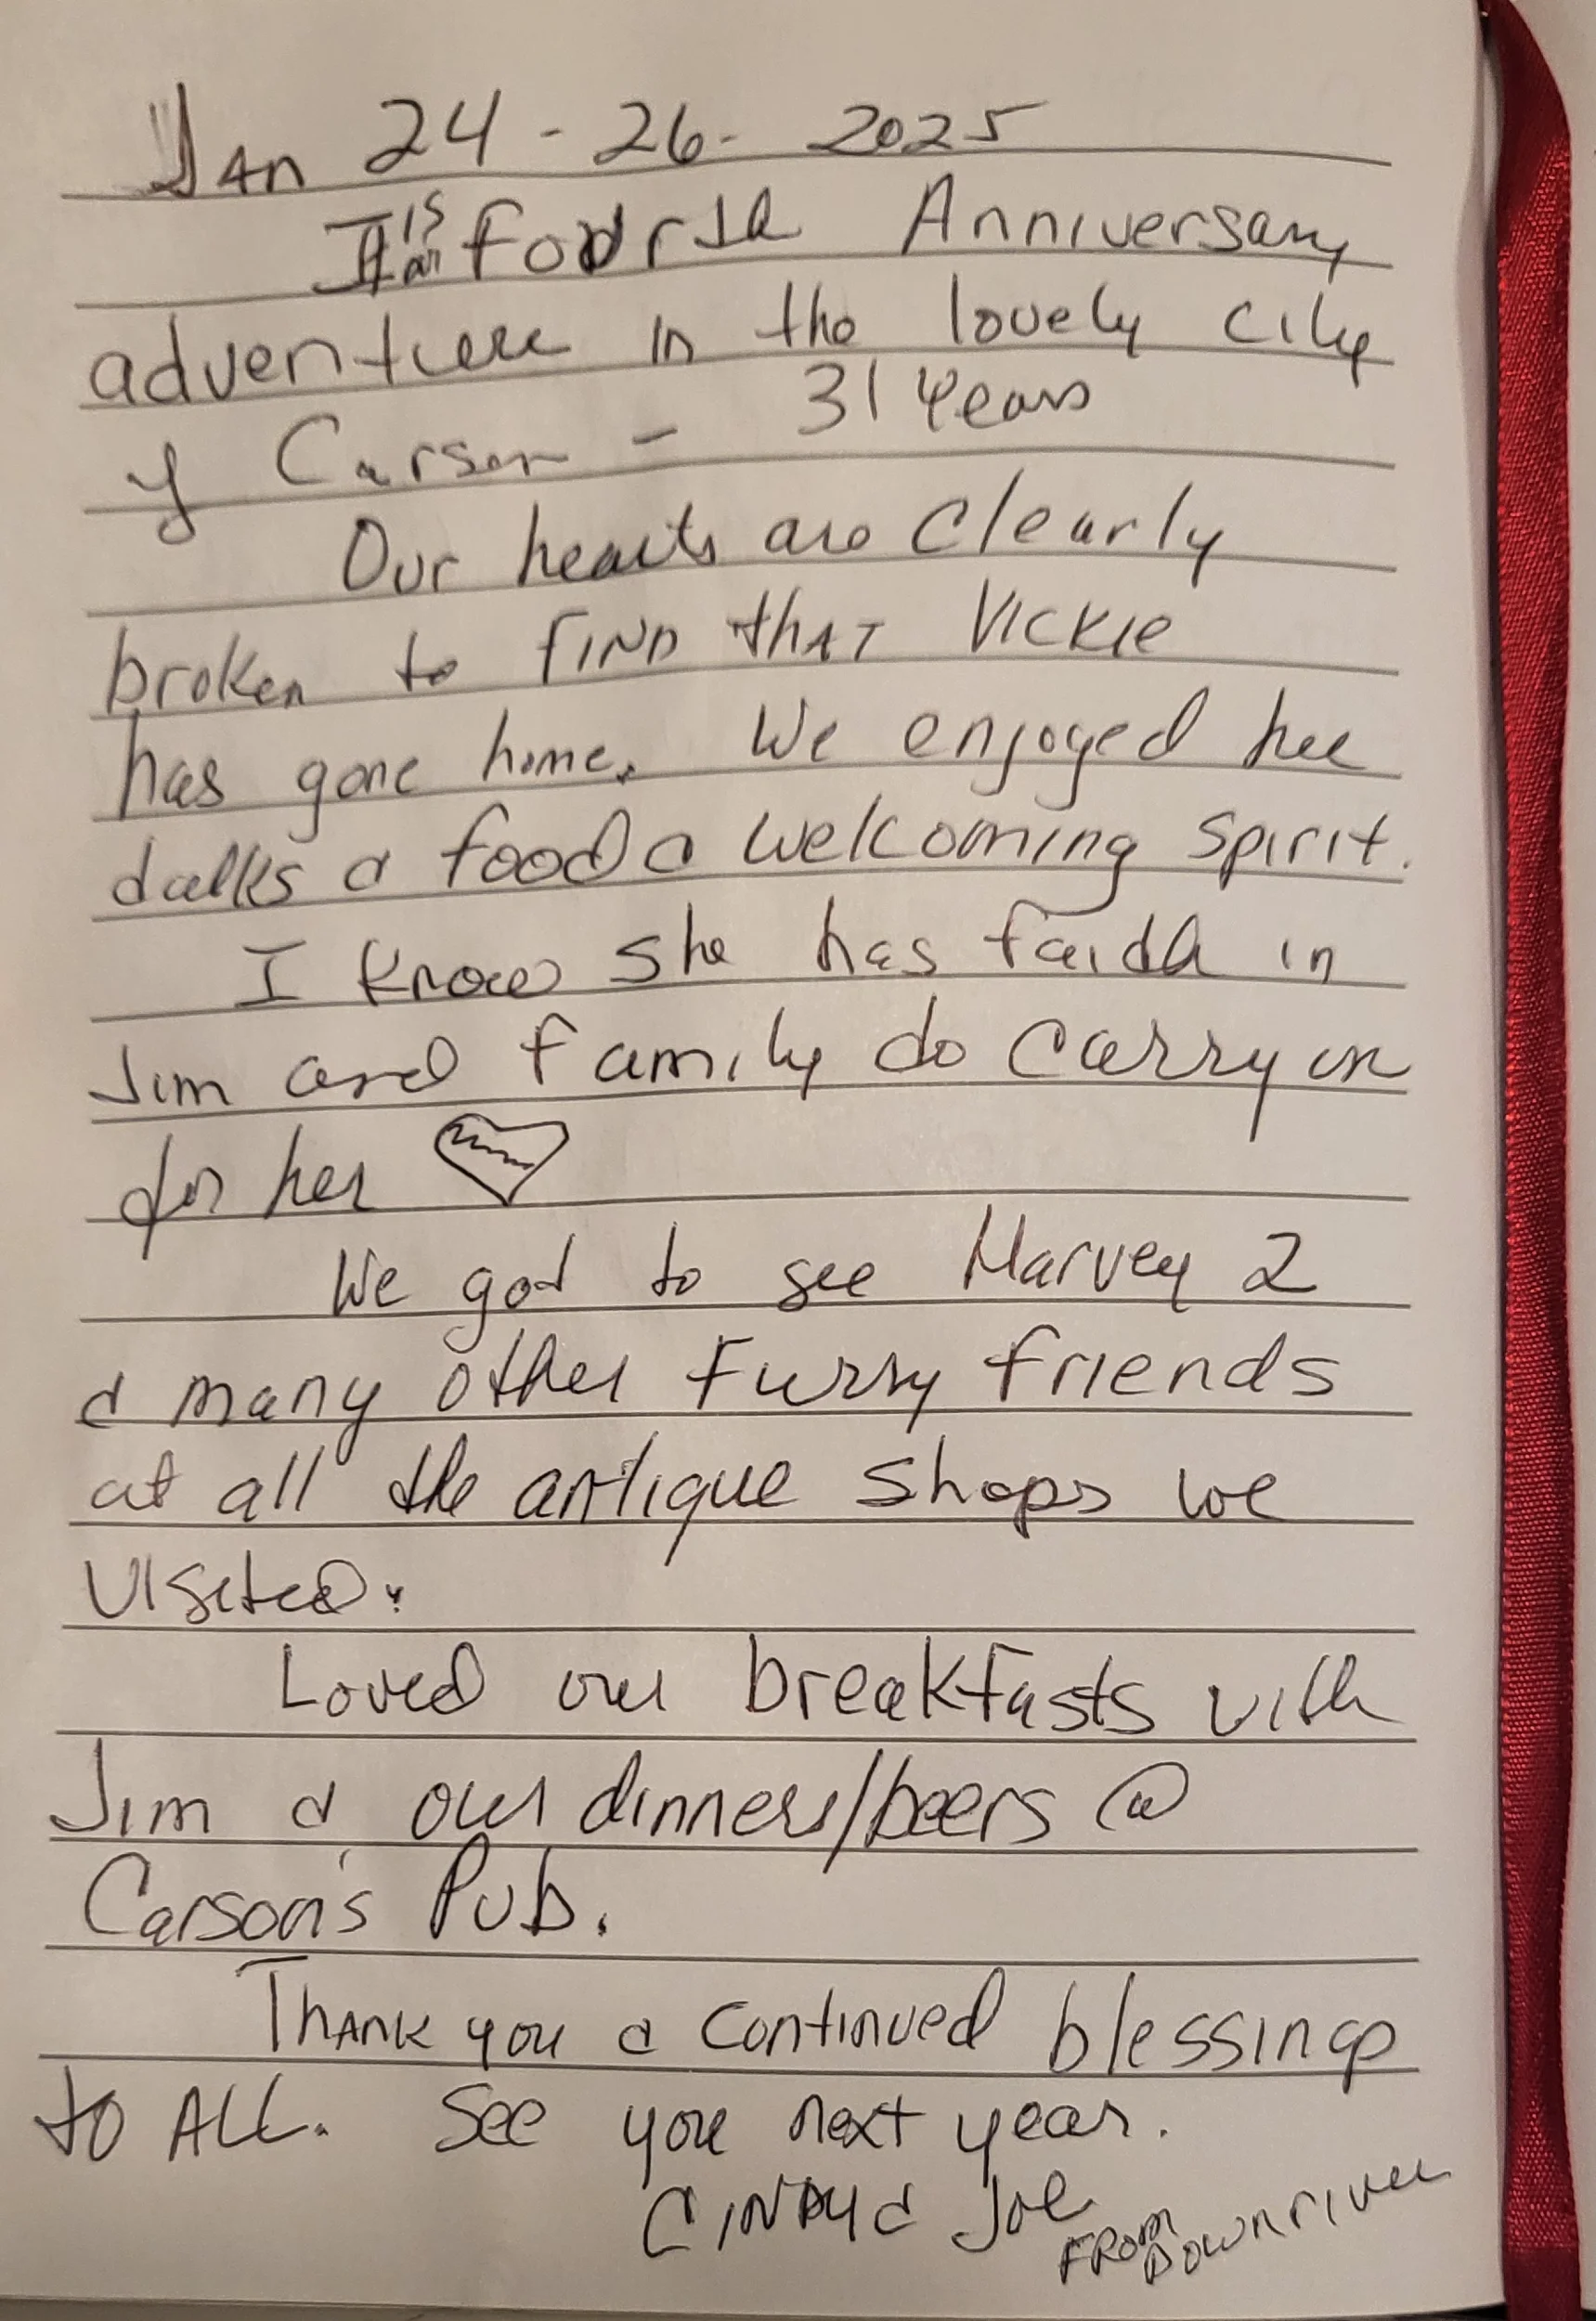 Jan 24 - 26 - 2025
is fourth Anniversary
adventure in the lovely city
of Carson - 31 years
Our hearts are clearly
broken to FIND thAT Vickie
has gone home. We enjoyed her
talks & food & welcoming spirit.
I know she has faith in
Jim and family to carry on
for her
We got to see Harvey 2
& many other furry friends
at all the antique shops we
visited.
Loved our breakfasts with
Jim & our dinners/beers @
Carson's Pub.
THANK you & continued blessings
to ALL. See you next year.
CINDY & Joe
FROM Downriver